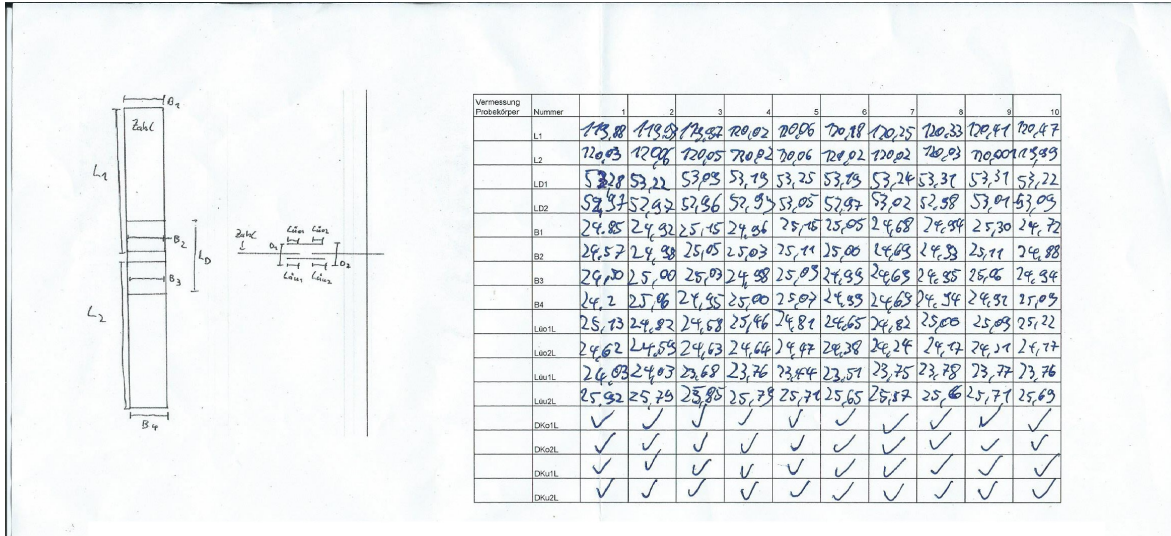 B1
Zahl
L1
B2
LD
B3
L2
B4
Zahl
Lüo1 Lüo2
D1
D2
Lüu1 Lüu2
Vermessung
Probekörper Nummer 1 2 3 4 5 6 7 8 9 10
L1 119,88 119,97 120,02 120,06 120,18 120,25 120,33 120,41 120,47
L2 120,03 120,05 120,02 120,06 120,02 120,02 120,03 119,99
LD1 53,28 53,22 53,09 53,19 53,25 53,19 53,24 53,31 53,31 53,22
LD2 52,97 52,97 52,96 52,99 53,05 52,97 53,02 52,98 53,01 53,09
B1 24,85 24,92 25,15 24,96 25,15 25,05 24,68 24,94 25,30 24,72
B2 24,57 24,98 25,05 25,03 25,11 25,00 24,69 24,93 25,11 24,88
B3 25,00 25,03 24,98 25,09 24,99 24,69 24,95 25,06 24,94
B4 24,2 25,06 24,95 25,00 25,07 24,99 24,69 24,94 24,92 25,09
Lüo1L 25,13 24,82 24,58 25,46 24,81 24,65 24,82 25,00 25,09 25,22
Lüo2L 24,62 24,59 24,63 24,64 24,47 24,38 24,24 24,17 24,21 24,17
Lüu1L 24,03 24,03 23,68 23,76 23,44 23,51 23,75 23,78 23,77 23,76
Lüu2L 25,92 25,79 25,85 25,79 25,71 25,65 25,57 25,71 25,69
DKo1L ✓ ✓ ✓ ✓ ✓ ✓ ✓ ✓ ✓ ✓
DKo2L ✓ ✓ ✓ ✓ ✓ ✓ ✓ ✓ ✓ ✓
DKu1L ✓ ✓ ✓ ✓ ✓ ✓ ✓ ✓ ✓ ✓
DKu2L ✓ ✓ ✓ ✓ ✓ ✓ ✓ ✓ ✓ ✓